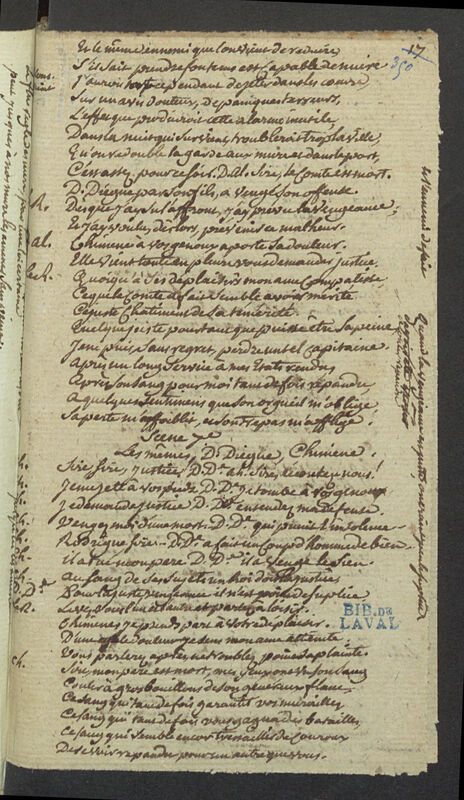 17
350
Et le même ennemi que l'on vient de reduire
S'il sait prendre son tems est capable de nuire
J'aurois tort cependant de jeter dans les cœurs
Sur un avis douteux, de paniques terreurs,
L'effet que produiroit cette alarme inutile,
Dans la nuit qui survient troubleroit trop la ville,
Qu'on redouble la garde aux murs et dans le port,
C'est assez, pour ce soir. D. al. Sire, le Comte est mort.
D. Diegue par son fils, a vengé son offense
R. Dès que j'ay su l'affront, j'ay prevu la vengeance,
Et j'ay voulu, dès lors, prevenir ce malheur.
al. Chimene à vos genoux aporte sa douleur.
Elle vient tout en pleurs vous demander justice,
Quoiqu'à ses deplaisirs mon ame compatisse,
Ce que le Comte a fait semble avoir merité
Ce juste chatiment de sa temerité
Quelque juste pourtant que puisse être sa peine
Je ne puis sans regret perdre un tel capitaine
Après un long service à mes Etats rendu
Après son sang pour moi tant de fois repandu,
A quelques sentimens que son orgueil m'oblige,
Sa perte m'affoiblit, et son trepas m'afflige.
Scene 7e
Les mêmes, D. Diegue, Chimene.
Sire, sire, justice, D. De. ah Sire, ecoutez nous!
Je me jette à vos pieds. D. De. j'embrasse vos genoux
Je demande justice D. De. entendez ma defense
Vengez moi d'une mort. D. De. qui punit l'insolence
Rodrigue, sire. D. De. a fait un coup d'homme de bien
il a tué mon pere. D. De. il a vengé le sien
Au sang de ses sujets un Roi doit la justice
D. De. Pour la juste vengeance il n'est point de suplice
R. Levez vous l'un et l'autre et parlez à loisir.
Chimene, je prends part à votre deplaisir.
D'une egale douleur je sens mon ame atteinte
Vous parlerez après, ne troublez point sa plainte
ch. Sire, mon pere est mort, mes yeux ont vu son sang
Couler à gros bouillons de son genereux flanc
Ce sang qui tant de fois garantit vos murailles
Ce sang qui tant de fois vous gagna des batailles,
Ce sang qui semble encor tressaillir de courroux
De se voir repandu pour un autre que vous.
BIB. DE
LAVAL